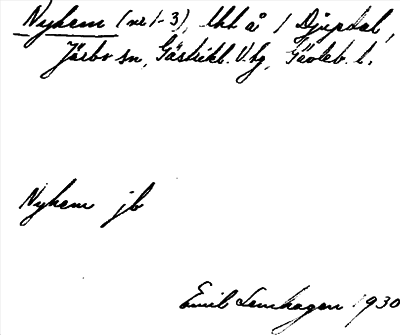 Nyhem (nr 1-3), lht å 1 Djupdal,
Järbo sn, Gästrikl. V. tg, Gävleb. l.
Nyhem jb
Emil Lenhagen 1930